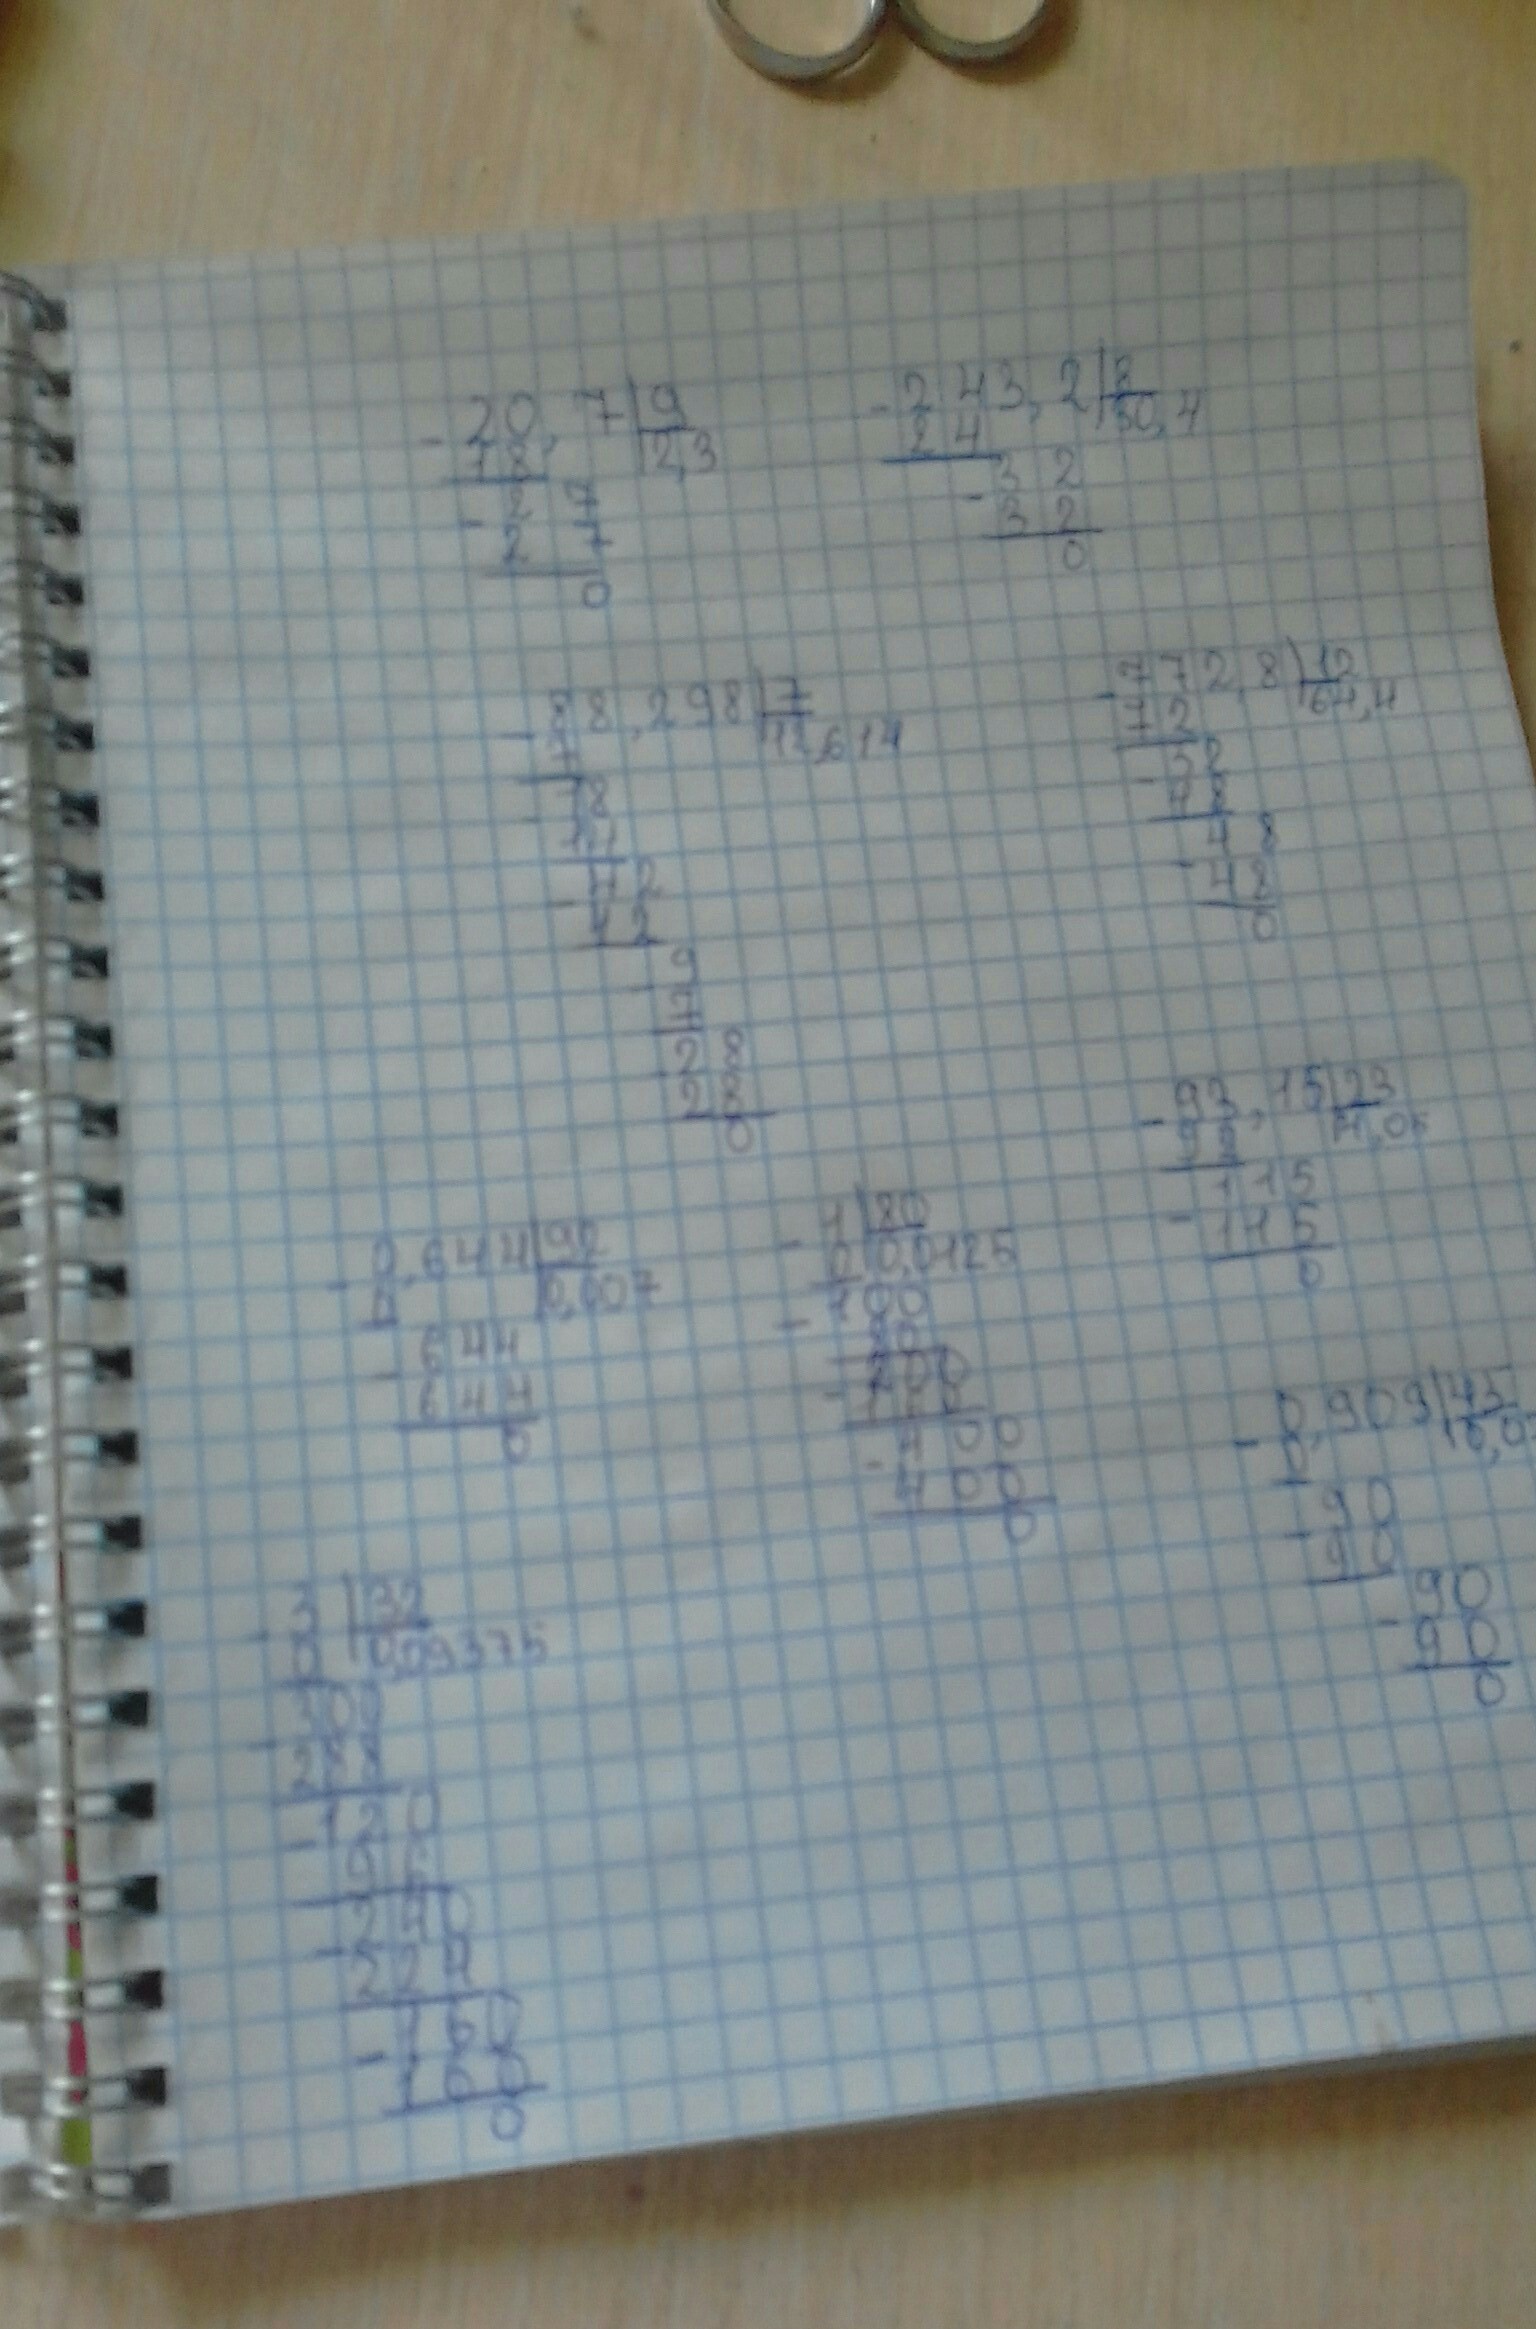 20,7|9
- 18 |2,3
27
- 27
0
243,2|8
- 24 |30,4
32
- 32
0
88,298|7
- 7 |12,614
18
14
42
- 42
9
7
28
28
0
772,8|12
- 72 |64,4
52
- 48
48
- 48
0
93,15|23
- 92 |4,05
115
- 115
0
0,644|92
- 0 |0,007
644
- 644
0
1|80
- 0|0,0125
100
- 80
200
- 160
400
- 400
0
0,909|45
- 0 |0,0
90
- 90
90
- 90
0
3|32
- 0|0,09375
300
- 288
120
- 96
240
- 224
160
- 160
0